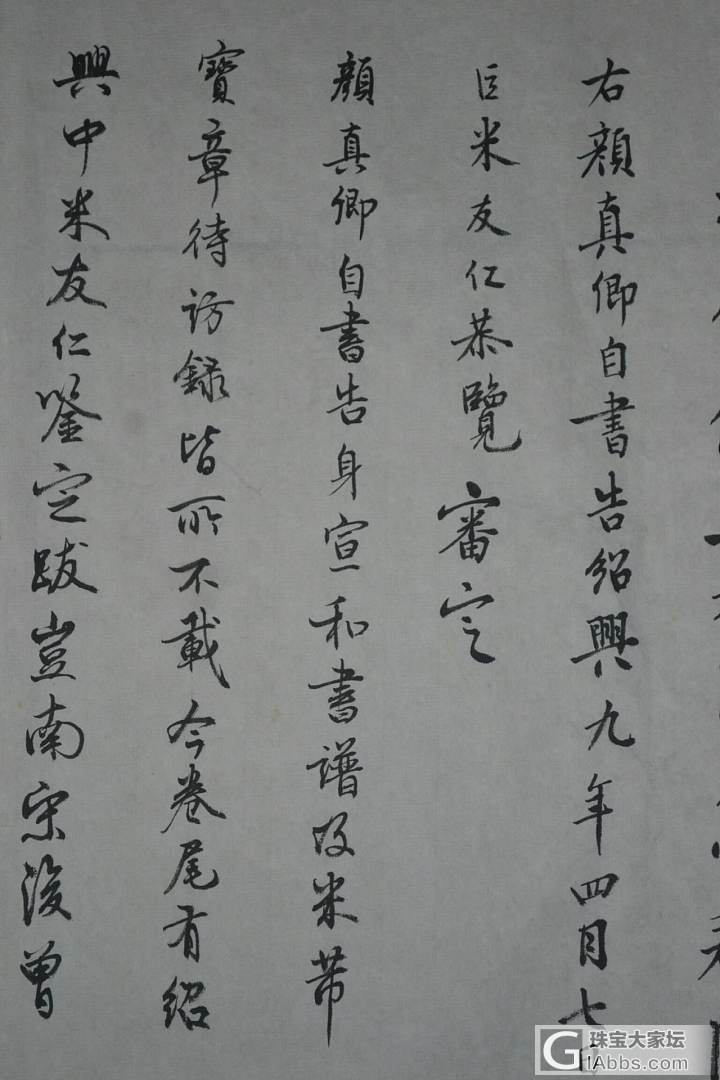 右顏真卿自書告紹興九年四月七日
臣米友仁恭覽審定
顏真卿自書告身宣和書譜及米芾
寶章待訪錄皆所不載今卷尾有紹
興中米友仁鑒定跋豈南宋後曾
珠宝大家坛
GIAbbs.com